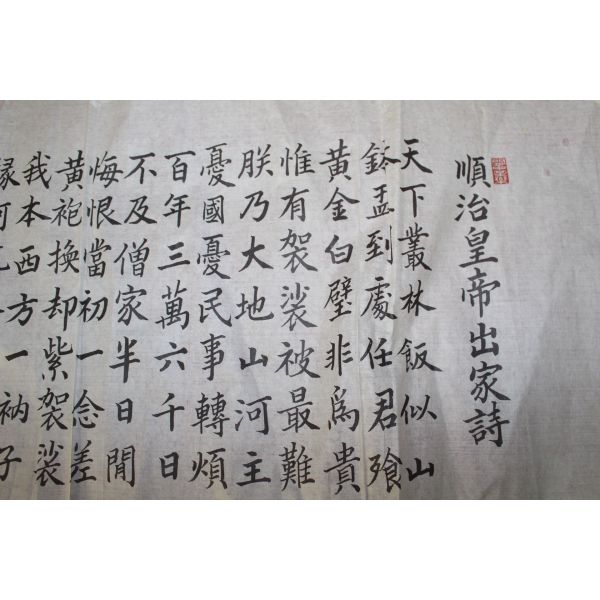 順治皇帝出家詩
天下叢林飯似山
鉢盂到處任君飱
黃金白璧非爲貴
惟有袈裟被最難
朕乃大地山河主
憂國憂民事轉煩
百年三萬六千日
不及僧家半日閒
悔恨當初一念差
黃袍換却紫袈裟
我本西方一衲子
緣何